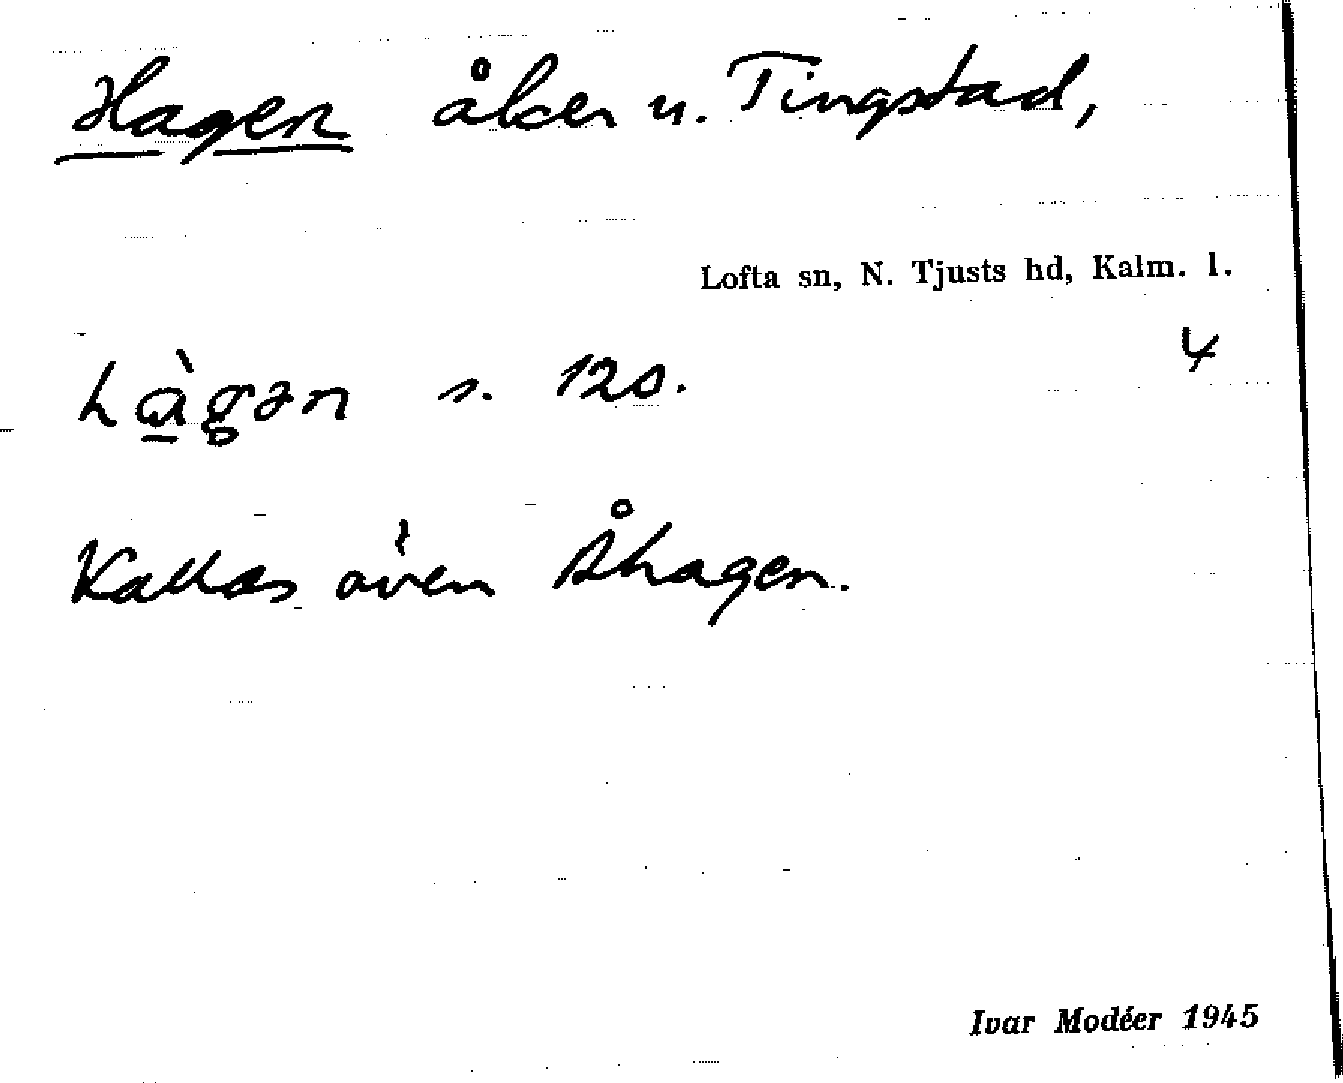 Hagen åker u. Tingstad,
Lofta sn, N. Tjusts hd, Kalm. l.
4
hàgən s. 120.
Kallas även Åhagen.
Ivar Modéer 1945